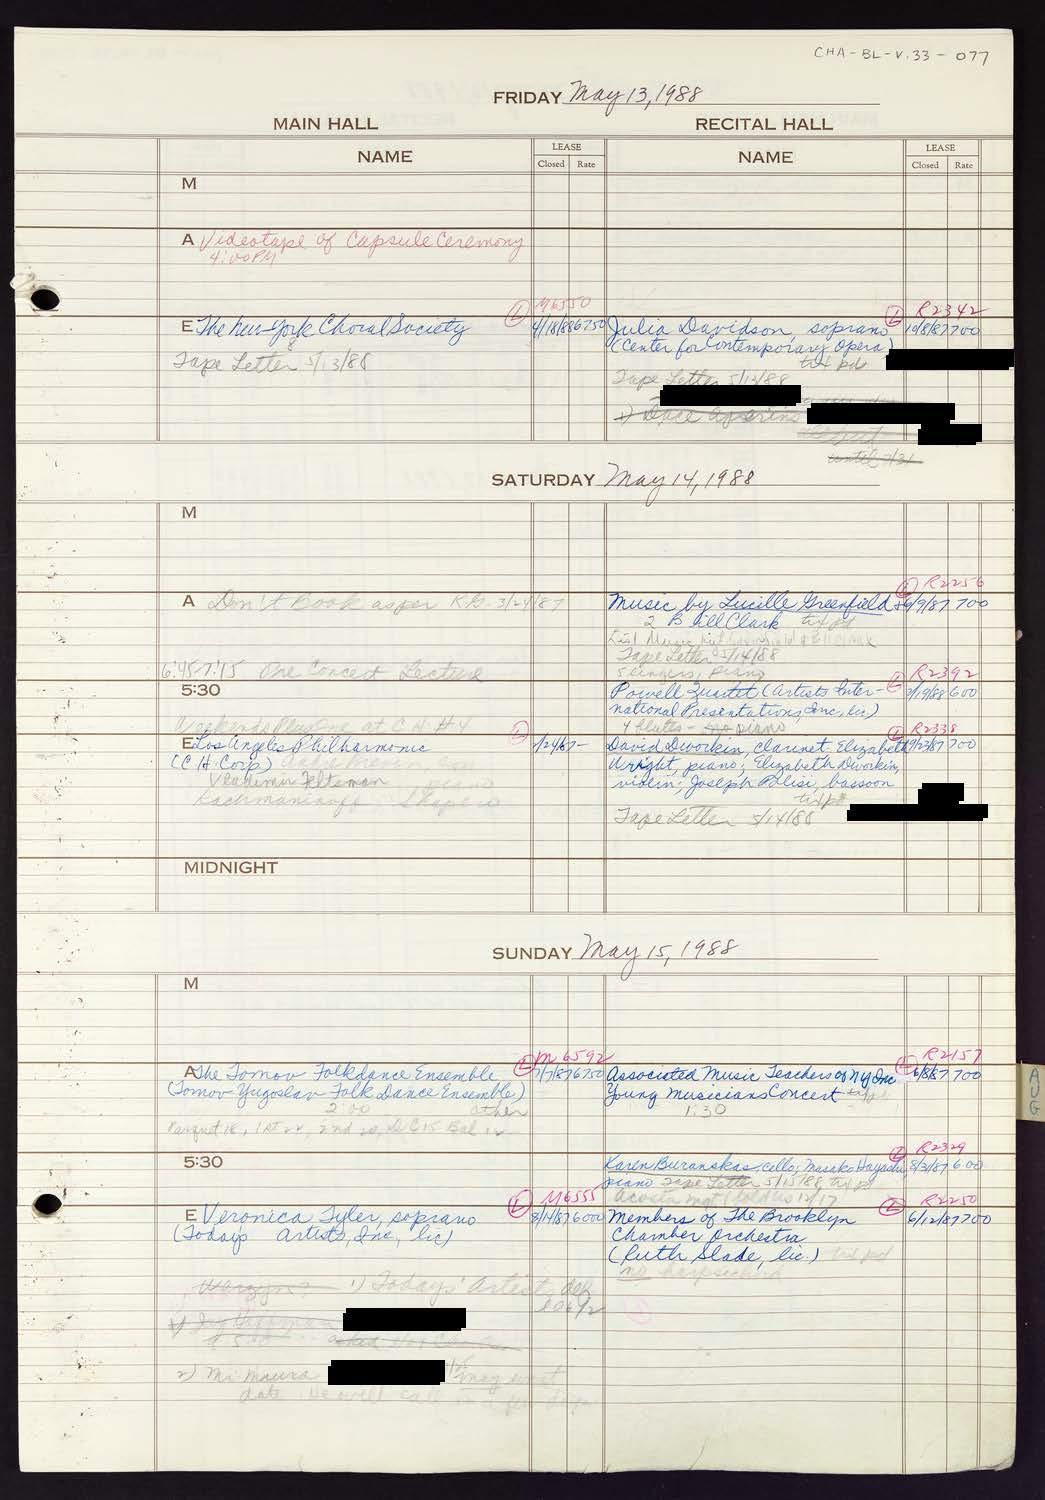 CHA-BL-V.33-077
FRIDAY May 13, 1988
MAIN HALL RECITAL HALL
NAME LEASE Closed Rate NAME LEASE Closed Rate
M
A Videotape of Capsule Ceremony
4:00 PM
L M6550 L R2342
E The New York Choral Society 4/18/88 6750 Julia Davidson, soprano 10/8/87 700
(Center for Contemporary Opera)
Tape Letter 5/13/88 txt pd
Tape Letter 5/13/88
until 7/31
SATURDAY May 14, 1988
M
L R2256
A Don't Book as per 3/24/87 Music by Lucille Greenfield & 9/9/87 700
2 Bill Clark
Tape Letter 5/14/88
6:45-7:15 Pre Concert Lecture singers, piano
L R2392
5:30 Powell Quartet (Artists Inter- 600
national Presentations, Inc., lic)
Weekends Plus One at C H 4 flutes - no piano
L L R2338
E Los Angeles Philharmonic 1/24/87 - David Dworkin, clarinet; Elizabeth 9/23/87 700
(C H Corp) Wright, piano; Elizabeth Dworkin,
Vladimir Feltsman violin; Joseph Polisi, bassoon
Rachmaninoff - Shapero
Tape Letter 5/14/88
MIDNIGHT
SUNDAY May 15, 1988
M
L M6592 L R2157
A The Tomov Folkdance Ensemble 7/7/87 6750 Associated Music Teachers of NY Inc 6/8/87 700
(Tomov Yugoslav Folk Dance Ensemble) Young Musicians Concert
2:00 other 1:30
L R2329
5:30 Karen Buranskas, cello; Masako Hayashi, 8/3/87 600
piano Tape Letter 5/15/88
L M6555 12/17 L R2250
E Veronica Tyler, soprano 8/14/87 6000 Members of The Brooklyn 6/12/87 700
(Todays Artists, Inc., lic) Chamber Orchestra
(Ruth Slade, lic.) txt pd
no harpsichord
1) Todays' Artists
2) Mr. Maura may want
date. He will call in a few days
AUG